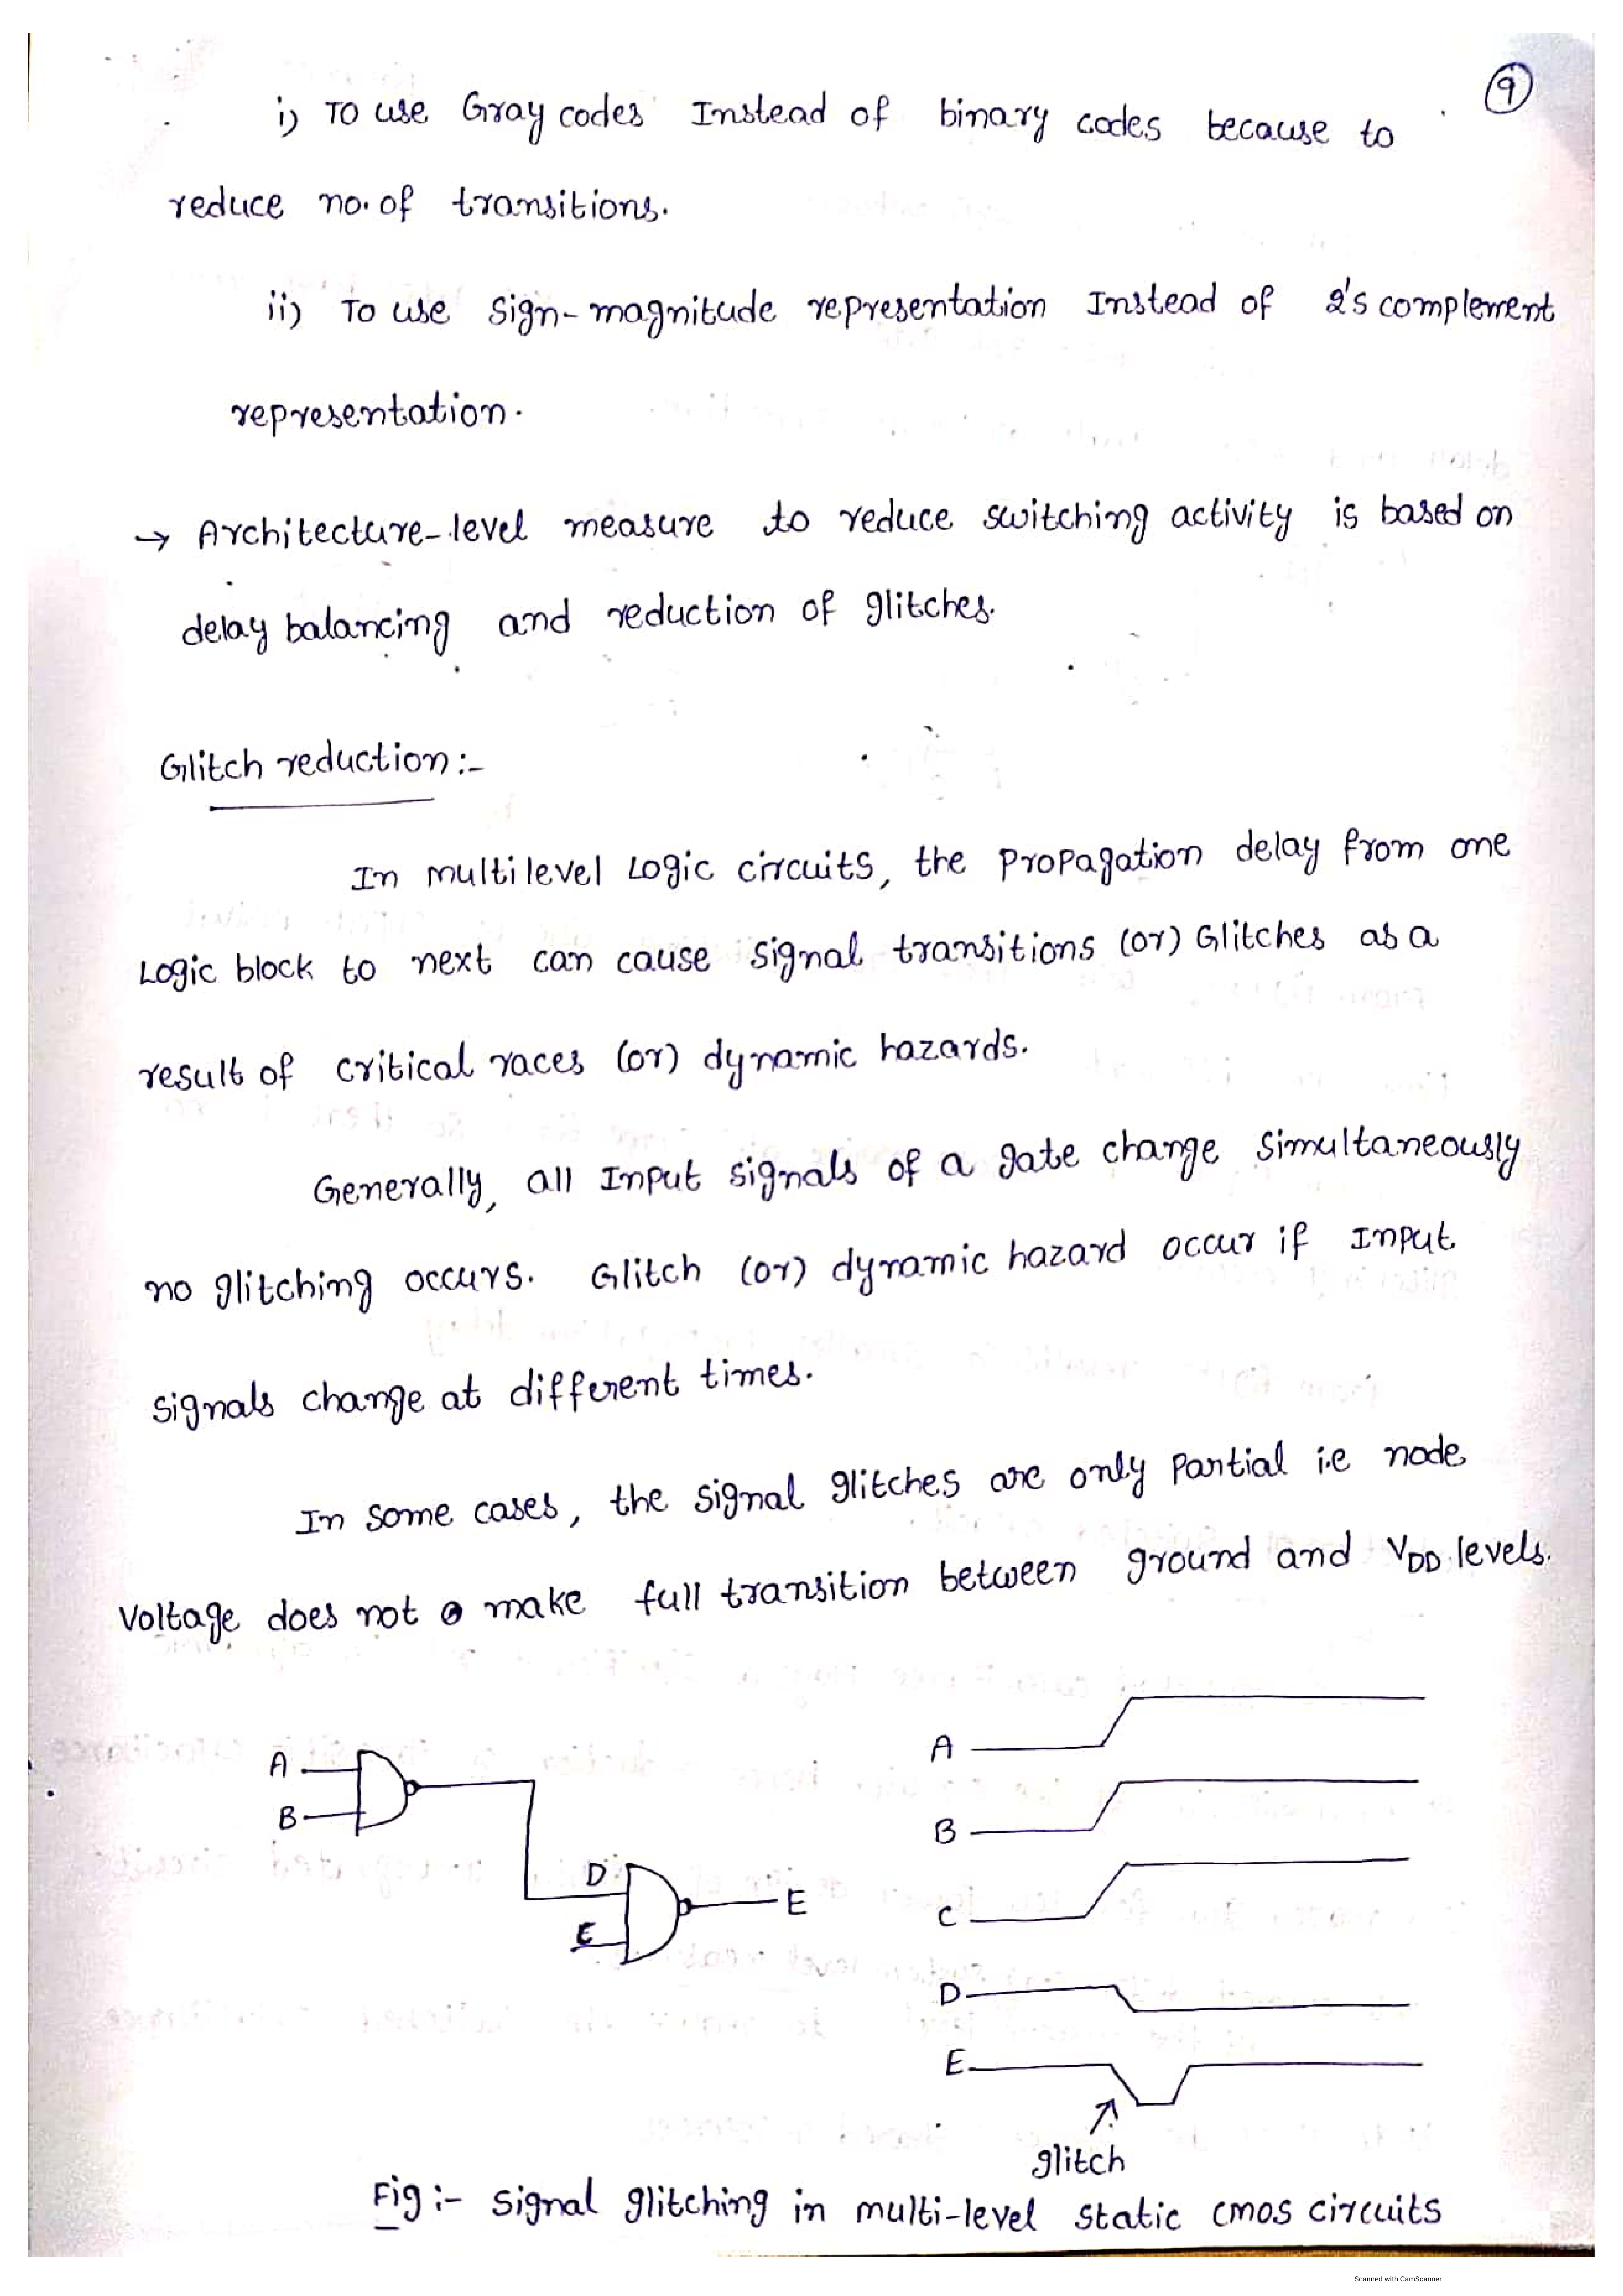 9
i) To use Gray codes Instead of binary codes because to
reduce no. of transitions.
ii) To use Sign-magnitude representation Instead of 2's complement
representation.
→ Architecture-level measure to reduce switching activity is based on
delay balancing and reduction of glitches.
Glitch reduction :-
In multilevel Logic circuits, the propagation delay from one
Logic block to next can cause signal transitions (or) Glitches as a
result of critical races (or) dynamic hazards.
Generally, all Input signals of a gate change simultaneously
no glitching occurs. Glitch (or) dynamic hazard occur if Input
signals change at different times.
In some cases, the signal glitches are only partial i.e node
Voltage does not make full transition between ground and VDD levels.
A
B
D
C
E
A
B
C
D
E
glitch
Fig :- Signal glitching in multi-level static CMOS circuits
Scanned with CamScanner